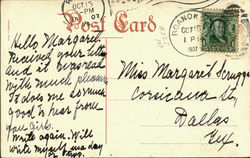 OCT 15
07
Post Card
ROANOK
OCT 15
1 P
1907
Hello Margaret
Received your letter
and it was read
with much pleasure
It does me so much
good to hear from
you girls.
Write again. Will
write myself in a day
or two.
Miss Margaret Scruggs
Corsicana St,
Dallas
Tex.